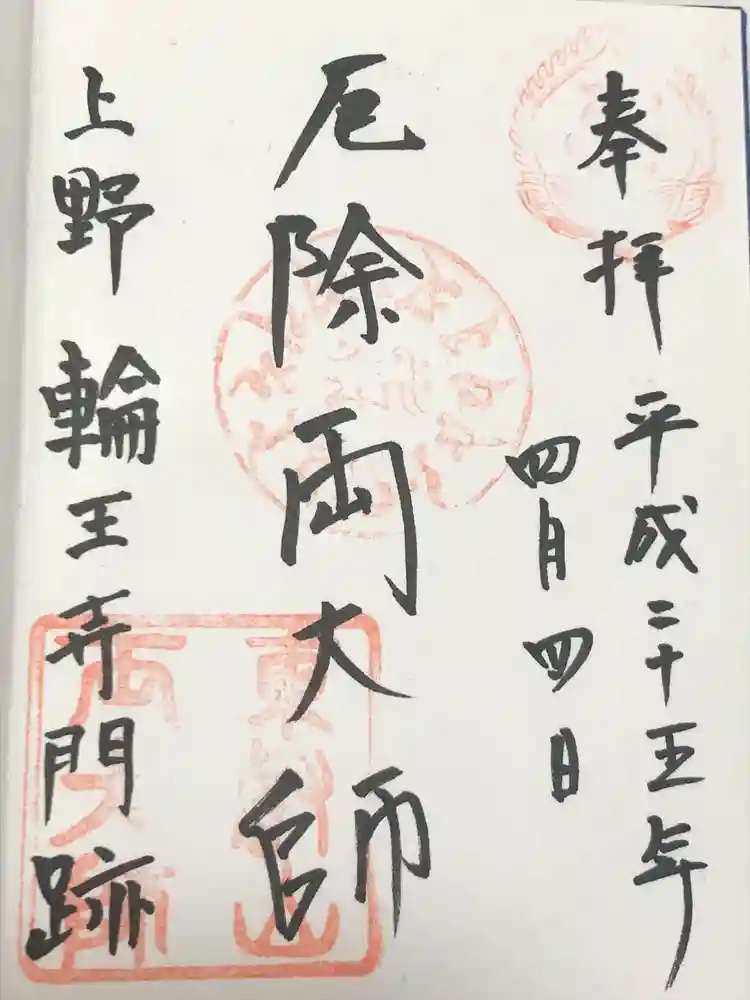 奉拝 平成二十五年
四月四日
厄除両大師
上野 輪王寺門跡